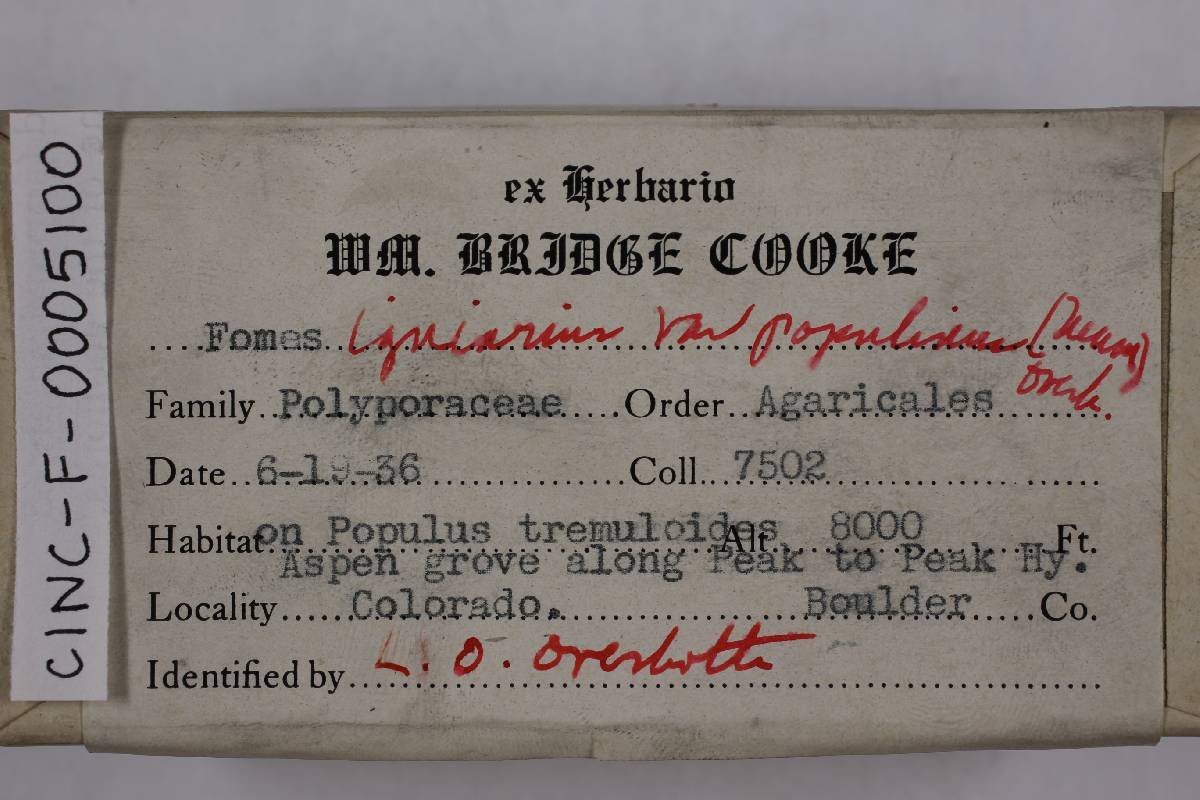 CINC-F-0005100
ex Herbario
WM. BRIDGE COOKE
Fomes igniarius var populinus (Neuman) Overh.
Family Polyporaceae Order Agaricales
Date 6-19-36 Coll. 7502
Habitat on Populus tremuloides Alt. 8000 Ft.
Aspen grove along Peak to Peak Hy.
Locality Colorado. Boulder Co.
Identified by L. O. Overholts